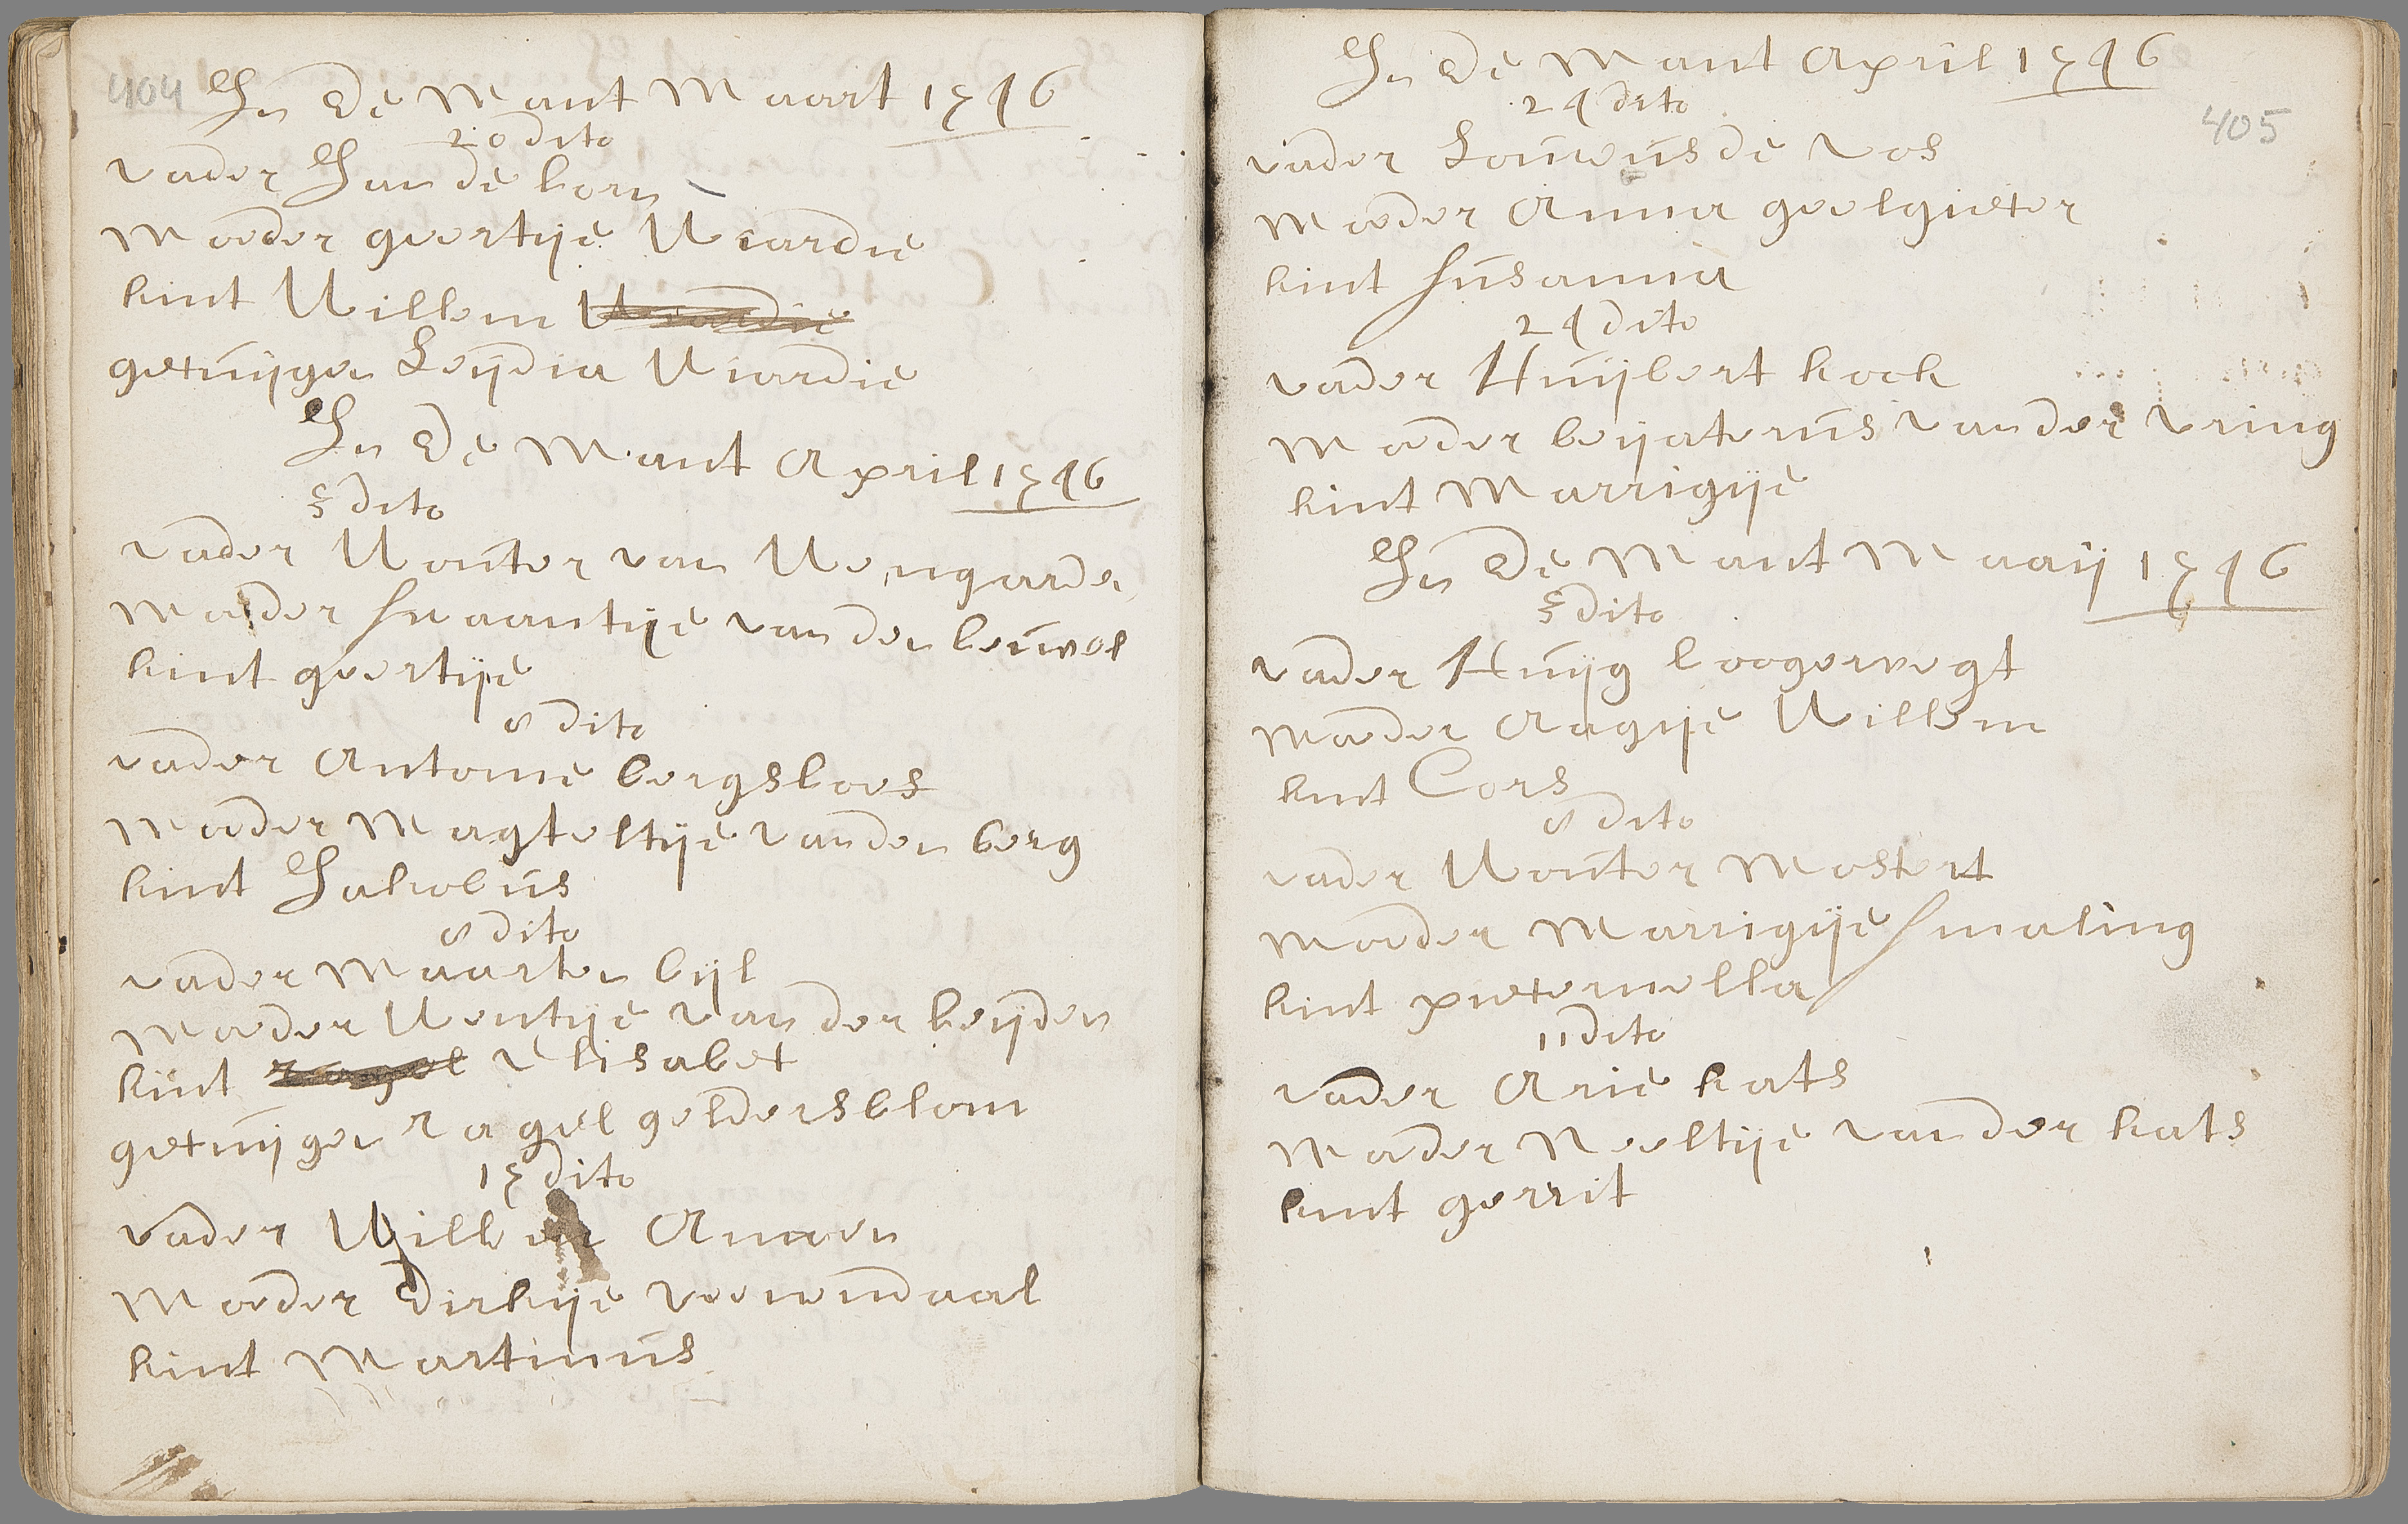 404
In De Maant Maart 1746
20 dito
vader Jan de korn
Moeder geertije Wiardie
kint Willem Wiardie
getuijgen Leijdia Wiardie
In De Maant April 1746
3 dito
vader Wouter van Wengarden
Moeder Snaantije van den heuvel
kint geertije
8 dito
vader Antonie bergshoes
Moeder Magteltije vanden berg
kint Jakobus
8 dito
vader Maarten bijl
Moeder Wentije van der heijden
kint ragel Elisabet
getuijgen ragel geldersblom
17 dito
vader Willem Ameen
Moeder Dirkije veenendaal
kint Martinus
In De Maant April 1746
405
24 dito
vader Louwus de vos
Moeder Anna geelgieter
kint Susanna
24 dito
vader Huijbert kock
Moeder beijaterus van der vring
kint Marrigije
In De Maant Maaij 1746
3 dito
vader Huijg hoogervegt
Moeder Aagije Willem
kint Cors
8 dito
vader Wouter Mostert
Moeder Marrigije Smaling
kint pieternella
11 dito
vader Arie kats
Moeder Neeltije van der kats
kint gerrit